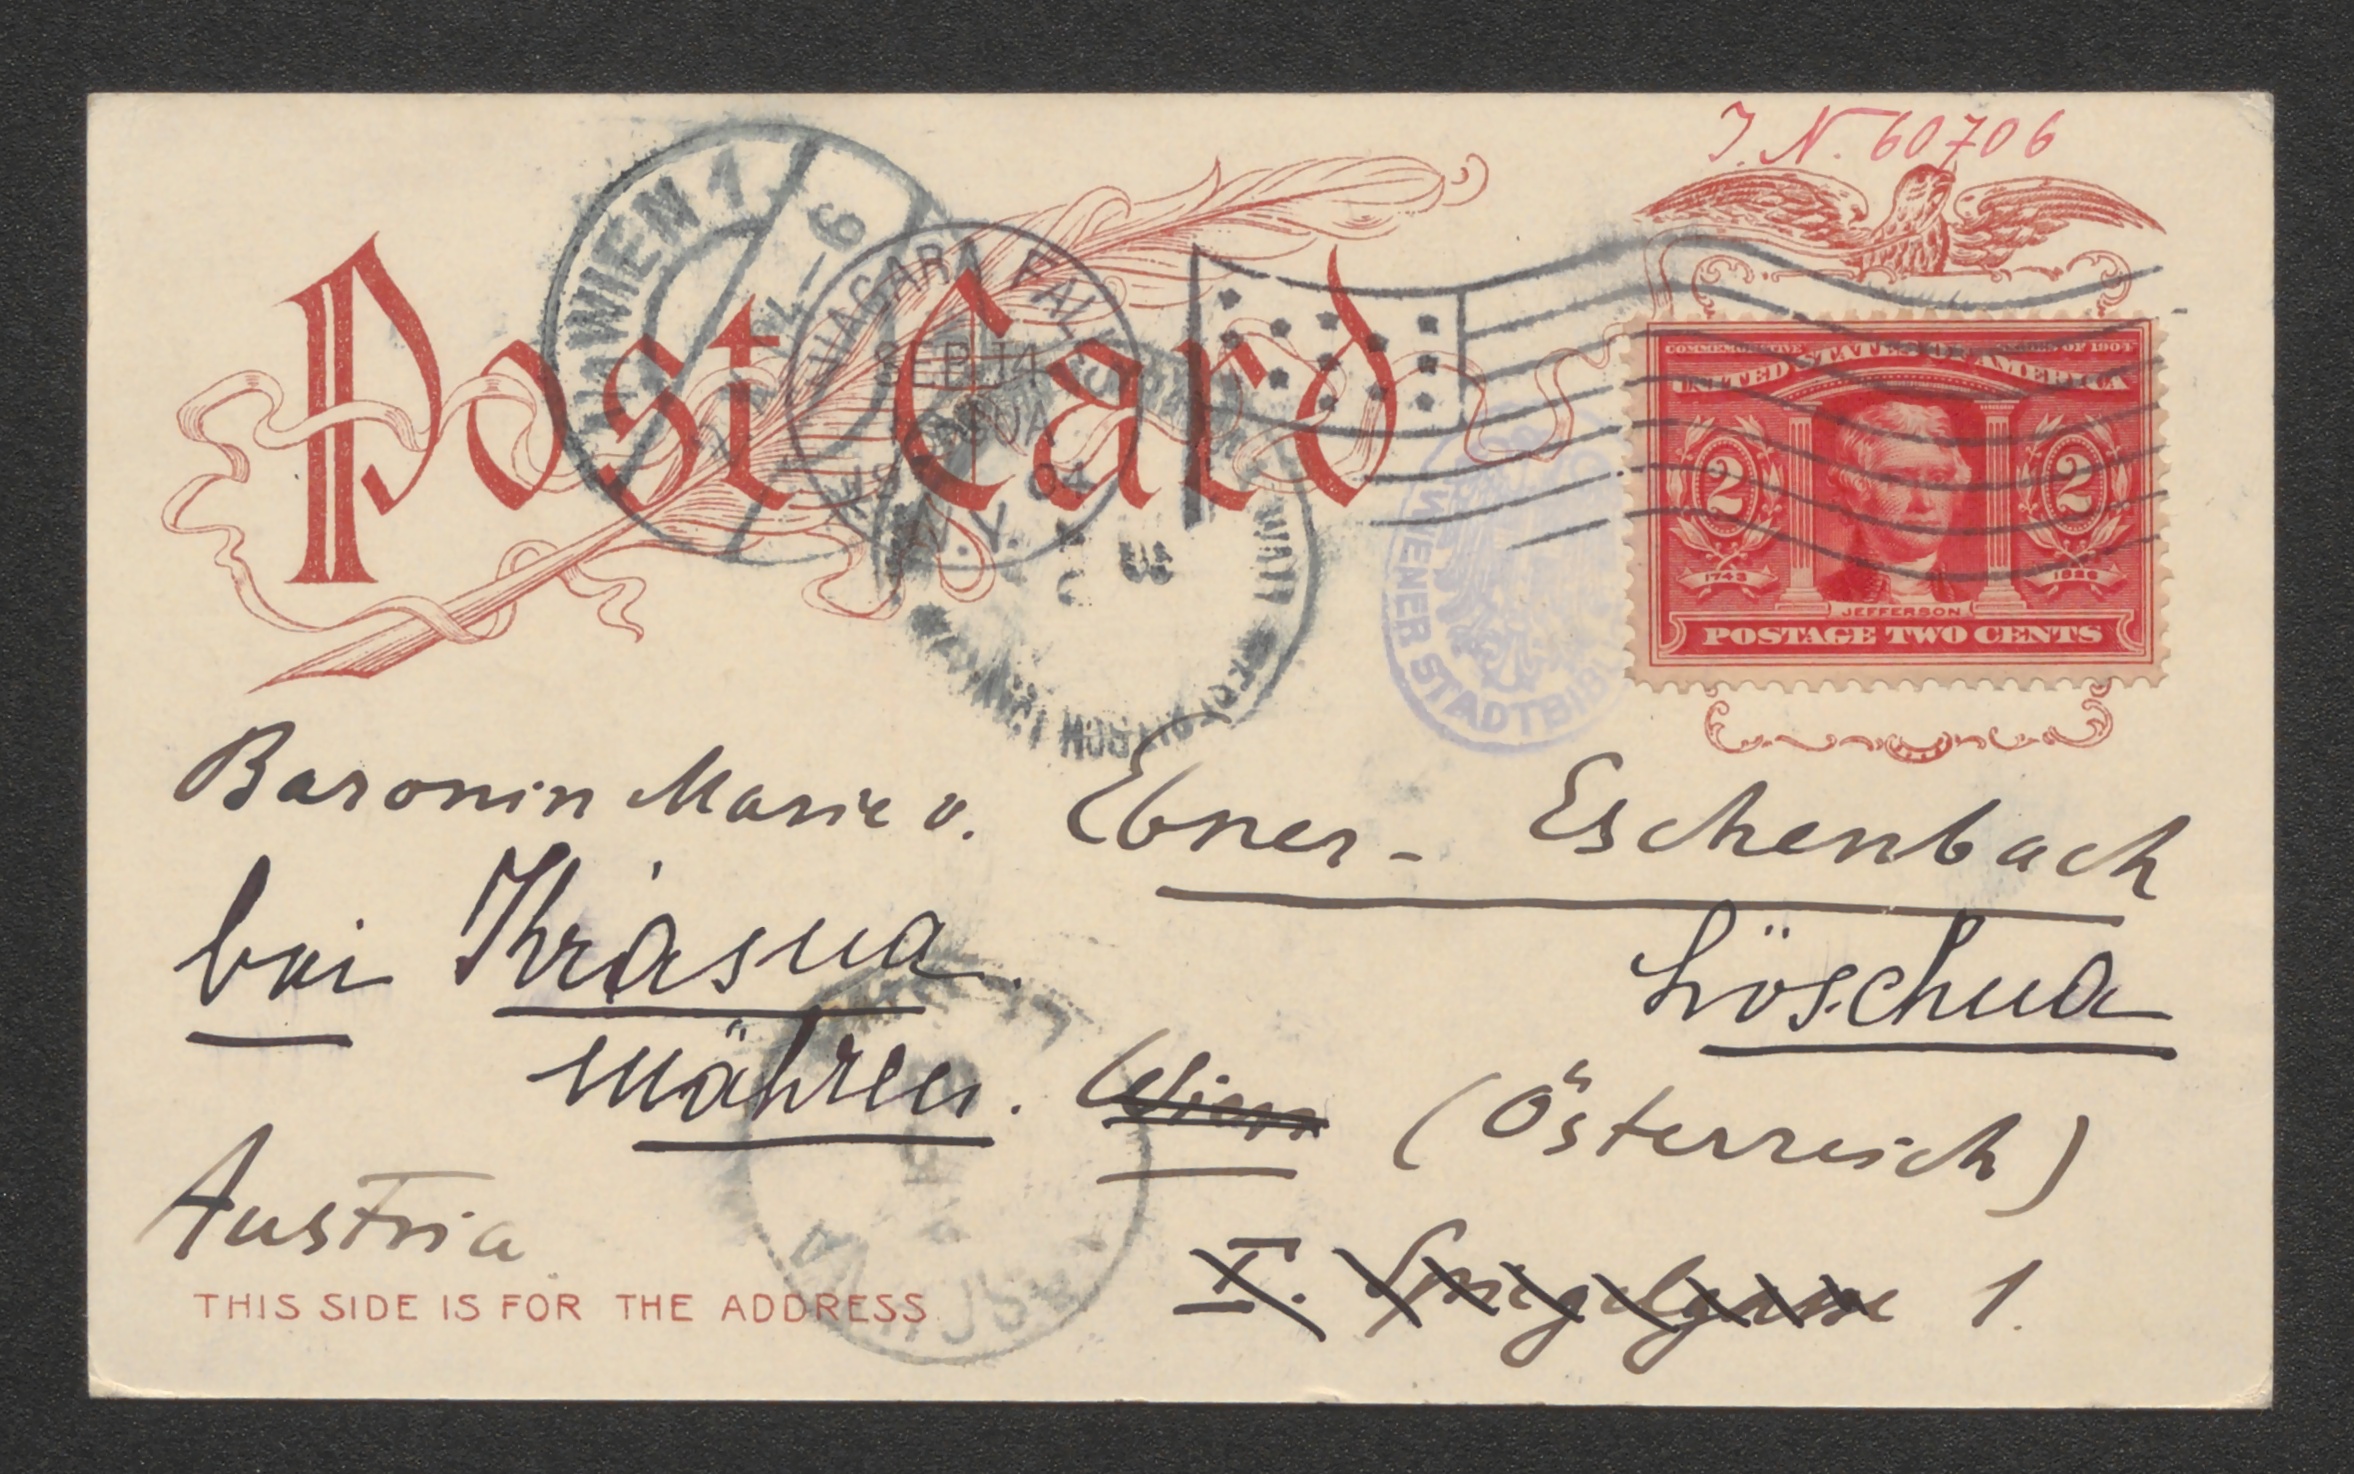 J. N. 60706
WIEN 1
6
NIAGARA FALLS
SEP 14
N.Y.
COMMEMORATIVE SERIES OF 1904
UNITED STATES OF AMERICA
2 2
1743 1826
JEFFERSON
POSTAGE TWO CENTS
Post Card
WIENER STADTBIBL
Baronin Marie v. Ebner-Eschenbach
bei Krásna. Löschna
Mähren. Wien (Österreich)
Austria
I. Spiegelgasse 1.
THIS SIDE IS FOR THE ADDRESS